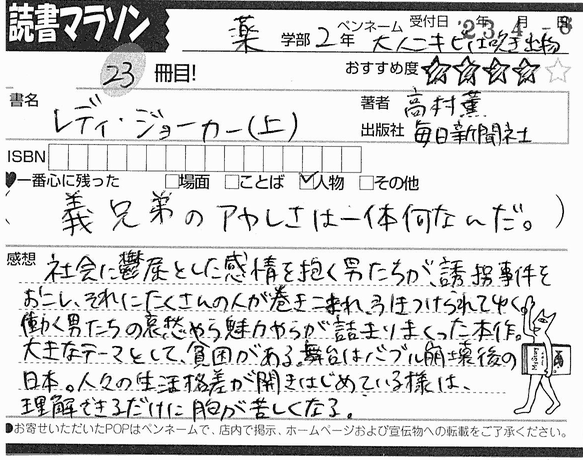 読書マラソン
薬 学部 2 年 ペンネーム 大人ニキビは吹き出物
受付日 '23年 4月 -8
23 冊目!
おすすめ度 ★★★★☆
書名 レディ・ジョーカー(上)
著者 高村薫
出版社 毎日新聞社
ISBN
♥一番心に残った □場面 □ことば ☑人物 □その他
( 義兄弟のアヤしさは一体何なんだ。 )
感想 社会に鬱屈とした感情を抱く男たちが、誘拐事件を
おこし、それにたくさんの人が巻きこまれ、引きつけられてゆく。
働く男たちの哀愁やら魅力やらが詰まりまくった本作。
大きなテーマとして、貧困がある。舞台はバブル崩壊後の
日本。人々の生活格差が開きはじめている様は、
理解できるだけに胸が苦しくなる。
●お寄せいただいたPOPはペンネームで、店内で掲示、ホームページおよび宣伝物への転載をご了承ください。